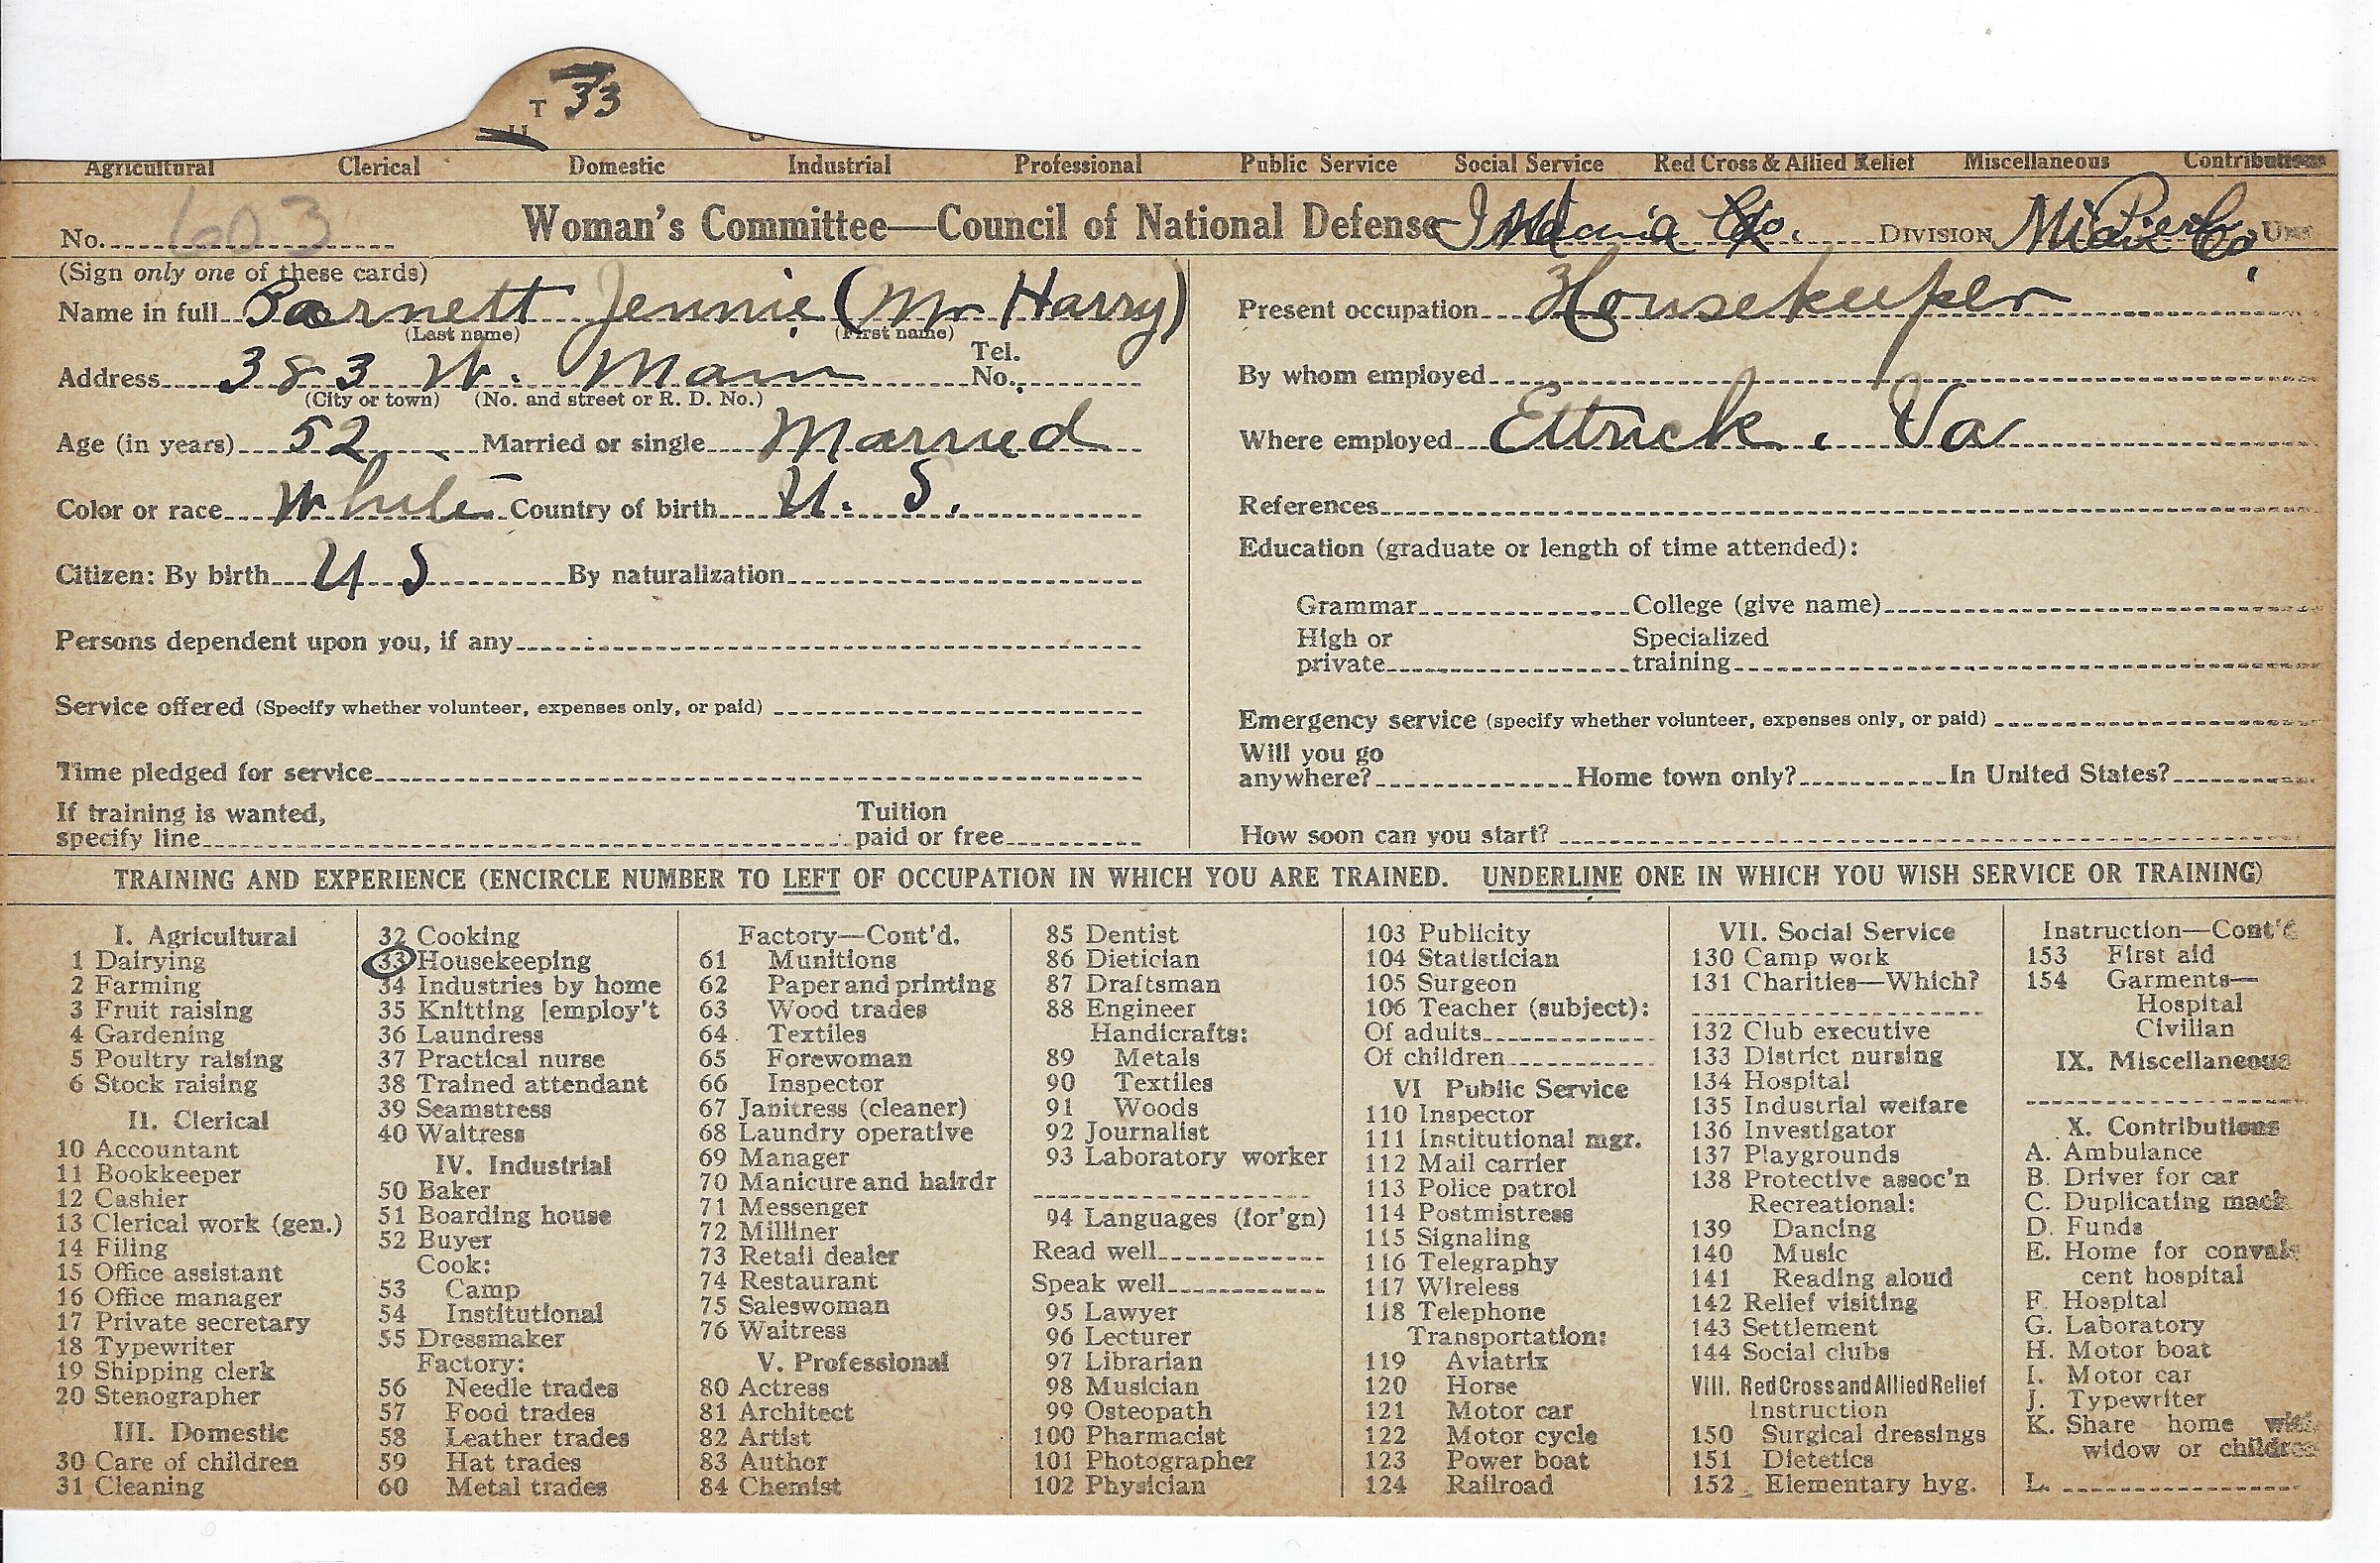 T 33
Agricultural Clerical Domestic Industrial Professional Public Service Social Service Red Cross & Allied Relief Miscellaneous Contributions
No. 603 Woman's Committee—Council of National Defense DIVISION
(Sign only one of these cards)
Name in full Barnett Jennie (Mr Harry)
(Last name) (First name)
Address 383 W. Main Tel. No.
(City or town) (No. and street or R. D. No.)
Age (in years) 52 Married or single Married
Color or race White Country of birth U. S.
Citizen: By birth U S By naturalization
Persons dependent upon you, if any
Service offered (Specify whether volunteer, expenses only, or paid)
Time pledged for service
If training is wanted, Tuition
specify line paid or free
Present occupation Housekeeper
By whom employed
Where employed Ettrick. Va
References
Education (graduate or length of time attended):
Grammar College (give name)
High or Specialized
private training
Emergency service (specify whether volunteer, expenses only, or paid)
Will you go
anywhere? Home town only? In United States?
How soon can you start?
TRAINING AND EXPERIENCE (ENCIRCLE NUMBER TO LEFT OF OCCUPATION IN WHICH YOU ARE TRAINED. UNDERLINE ONE IN WHICH YOU WISH SERVICE OR TRAINING)
I. Agricultural
1 Dairying
2 Farming
3 Fruit raising
4 Gardening
5 Poultry raising
6 Stock raising
II. Clerical
10 Accountant
11 Bookkeeper
12 Cashier
13 Clerical work (gen.)
14 Filing
15 Office assistant
16 Office manager
17 Private secretary
18 Typewriter
19 Shipping clerk
20 Stenographer
III. Domestic
30 Care of children
31 Cleaning
32 Cooking
33 Housekeeping
34 Industries by home
35 Knitting [employ't
36 Laundress
37 Practical nurse
38 Trained attendant
39 Seamstress
40 Waitress
IV. Industrial
50 Baker
51 Boarding house
52 Buyer
Cook:
53 Camp
54 Institutional
55 Dressmaker
Factory:
56 Needle trades
57 Food trades
58 Leather trades
59 Hat trades
60 Metal trades
Factory—Cont'd.
61 Munitions
62 Paper and printing
63 Wood trades
64 Textiles
65 Forewoman
66 Inspector
67 Janitress (cleaner)
68 Laundry operative
69 Manager
70 Manicure and hairdr
71 Messenger
72 Milliner
73 Retail dealer
74 Restaurant
75 Saleswoman
76 Waitress
V. Professional
80 Actress
81 Architect
82 Artist
83 Author
84 Chemist
85 Dentist
86 Dietician
87 Draftsman
88 Engineer
Handicrafts:
89 Metals
90 Textiles
91 Woods
92 Journalist
93 Laboratory worker
94 Languages (for'gn)
Read well
Speak well
95 Lawyer
96 Lecturer
97 Librarian
98 Musician
99 Osteopath
100 Pharmacist
101 Photographer
102 Physician
103 Publicity
104 Statistician
105 Surgeon
106 Teacher (subject):
Of adults
Of children
VI Public Service
110 Inspector
111 Institutional mgr.
112 Mail carrier
113 Police patrol
114 Postmistress
115 Signaling
116 Telegraphy
117 Wireless
118 Telephone
Transportation:
119 Aviatrix
120 Horse
121 Motor car
122 Motor cycle
123 Power boat
124 Railroad
VII. Social Service
130 Camp work
131 Charities—Which?
132 Club executive
133 District nursing
134 Hospital
135 Industrial welfare
136 Investigator
137 Playgrounds
138 Protective assoc'n
Recreational:
139 Dancing
140 Music
141 Reading aloud
142 Relief visiting
143 Settlement
144 Social clubs
VIII. Red Cross and Allied Relief
Instruction
150 Surgical dressings
151 Dietetics
152 Elementary hyg.
Instruction—Cont'd
153 First aid
154 Garments—
Hospital
Civilian
IX. Miscellaneous
X. Contributions
A. Ambulance
B. Driver for car
C. Duplicating mach
D. Funds
E. Home for convales
cent hospital
F. Hospital
G. Laboratory
H. Motor boat
I. Motor car
J. Typewriter
K. Share home with
widow or children
L.